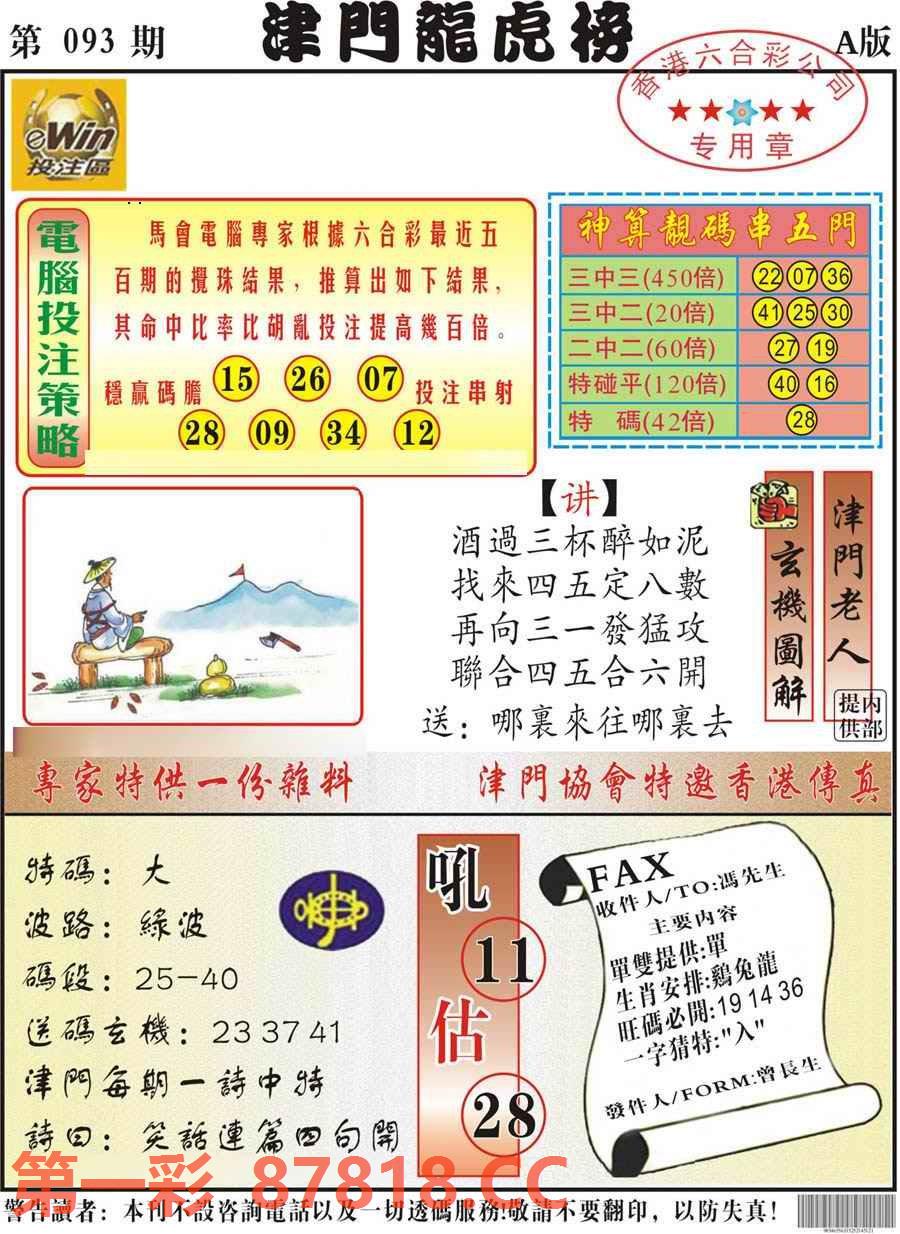 第 093 期
津門龍虎榜
A版
香港六合彩公司
专用章
eWin
投注區
電腦投注策略
馬會電腦專家根據六合彩最近五
百期的攪珠結果，推算出如下結果，
其命中比率比胡亂投注提高幾百倍。
穩贏碼膽 15 26 07 投注串射
28 09 34 12
神算靚碼串五門
三中三(450倍) 22 07 36
三中二(20倍) 41 25 30
二中二(60倍) 27 19
特碰平(120倍) 40 16
特 碼(42倍) 28
【讲】
酒過三杯醉如泥
找來四五定八數
再向三一發猛攻
聯合四五合六開
送：哪裏來往哪裏去
玄機圖解
津門老人
内部提供
專家特供一份雜料
津門協會特邀香港傳真
特碼：大
波路：綠波
碼段：25-40
送碼玄機：23 37 41
津門每期一詩中特
詩曰：笑話連篇四句開
吼
11
估
28
FAX
收件人/TO:馮先生
主要内容
單雙提供:單
生肖安排:鷄兔龍
旺碼必開:19 14 36
一字猜特:"入"
發件人/FORM:曾長生
第一彩 87818.CC
警告讀者：本刊不設咨詢電話以及一切透碼服務!敬請不要翻印，以防失真！